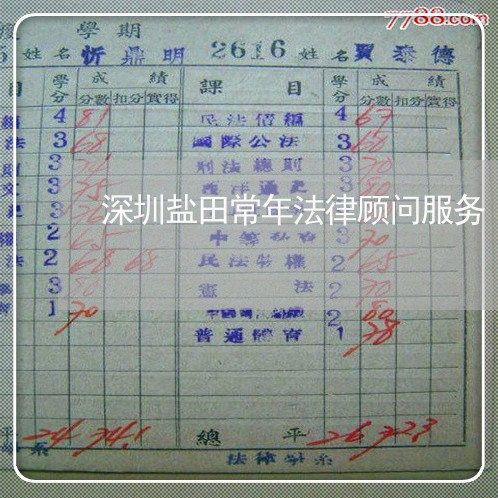 7788.com
學期
姓名 忻鼎明 2616 姓名 賈泰德
目 學分 成績 課目 學分 成績
分數 扣分 實得 分數 扣分 實得
4 81 民法債編 4 67
法 3 68 國際公法 3 60
3 刑法總則 3 70
文 3 75 西洋通史 3 80
3
深圳盐田常年法律顾问服务
權 2 65 3 70
法 2 68 68 民法物權 2 65
3 80 憲法 2 70
育 1 70 2 80
普通體育 1 78
平 24 74.1 總平 26 72.3
系 法律學系